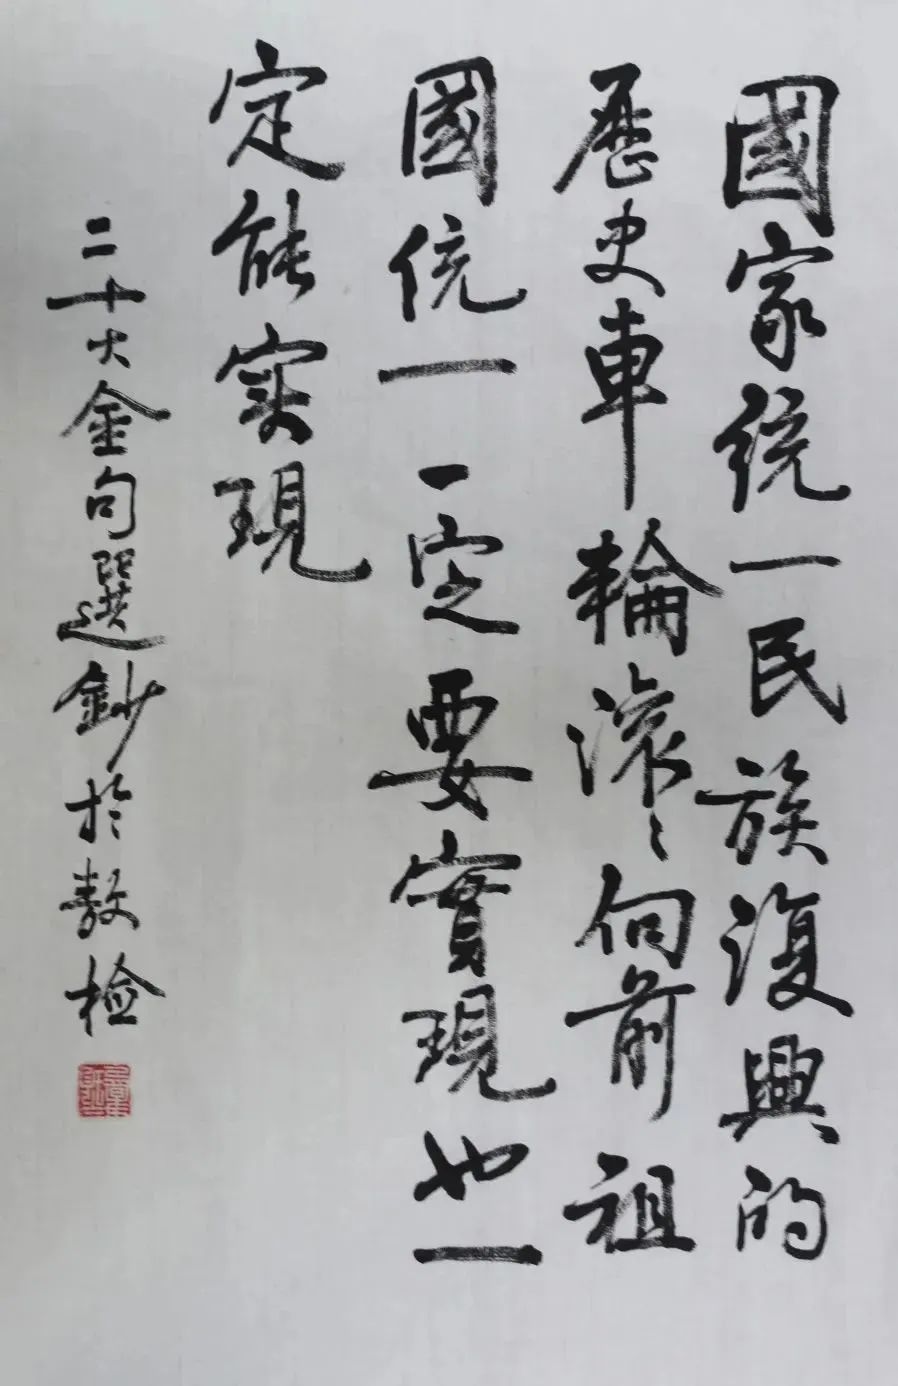 國家統一民族復興的
歷史車輪滾滾向前祖
國統一一定要實現也一
定能实現
二十大金句選鈔於敖檢